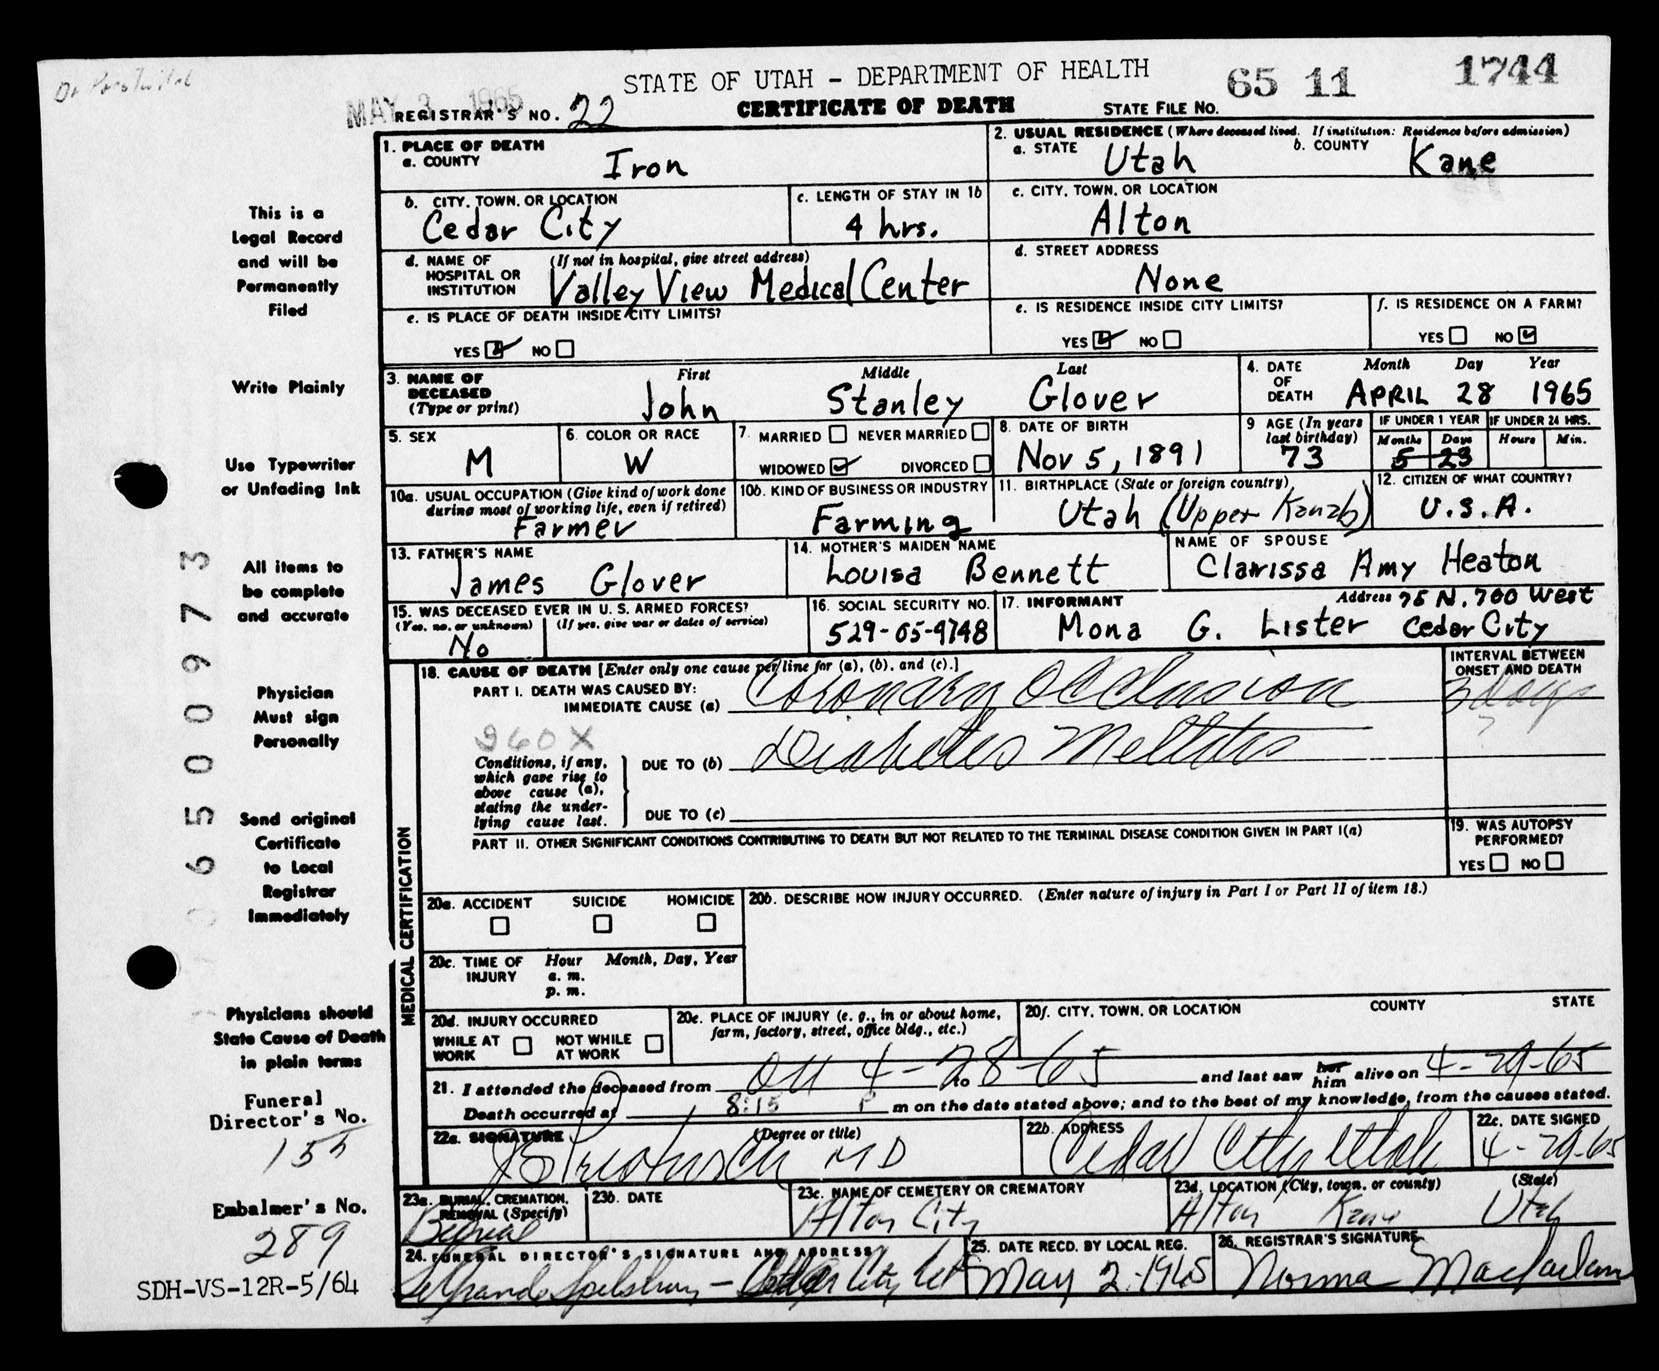 STATE OF UTAH - DEPARTMENT OF HEALTH
65 11 1744
MAY 3 1965
REGISTRAR'S NO. 22
CERTIFICATE OF DEATH
STATE FILE NO.
1. PLACE OF DEATH
a. COUNTY
Iron
2. USUAL RESIDENCE (Where deceased lived. If institution: Residence before admission)
a. STATE Utah
b. COUNTY Kane
b. CITY, TOWN, OR LOCATION
Cedar City
c. LENGTH OF STAY IN 1b
4 hrs.
c. CITY, TOWN, OR LOCATION
Alton
d. NAME OF HOSPITAL OR INSTITUTION
(If not in hospital, give street address)
Valley View Medical Center
d. STREET ADDRESS
None
e. IS PLACE OF DEATH INSIDE CITY LIMITS?
YES NO
e. IS RESIDENCE INSIDE CITY LIMITS?
YES NO
f. IS RESIDENCE ON A FARM?
YES NO
3. NAME OF DECEASED
(Type or print)
First Middle Last
John Stanley Glover
4. DATE OF DEATH
Month Day Year
APRIL 28 1965
5. SEX
M
6. COLOR OR RACE
W
7. MARRIED NEVER MARRIED
WIDOWED DIVORCED
8. DATE OF BIRTH
Nov 5, 1891
9 AGE (In years last birthday)
73
IF UNDER 1 YEAR
Months Days
5 23
IF UNDER 24 HRS.
Hours Min.
10a. USUAL OCCUPATION (Give kind of work done during most of working life, even if retired)
Farmer
10b. KIND OF BUSINESS OR INDUSTRY
Farming
11. BIRTHPLACE (State or foreign country)
Utah (Upper Kanab)
12. CITIZEN OF WHAT COUNTRY?
U.S.A.
13. FATHER'S NAME
James Glover
14. MOTHER'S MAIDEN NAME
Louisa Bennett
NAME OF SPOUSE
Clarissa Amy Heaton
15. WAS DECEASED EVER IN U. S. ARMED FORCES?
(Yes, no, or unknown) (If yes, give war or dates of service)
No
16. SOCIAL SECURITY NO.
529-05-9748
17. INFORMANT
Mona G. Lister
Address 75 N. 700 West
Cedar City
MEDICAL CERTIFICATION
18. CAUSE OF DEATH [Enter only one cause per line for (a), (b), and (c).]
INTERVAL BETWEEN ONSET AND DEATH
PART I. DEATH WAS CAUSED BY:
IMMEDIATE CAUSE (a) Coronary Occlusion
3 days
260X
Conditions, if any, which gave rise to above cause (a), stating the underlying cause last.
DUE TO (b) Diabetes Mellitus
DUE TO (c)
PART II. OTHER SIGNIFICANT CONDITIONS CONTRIBUTING TO DEATH BUT NOT RELATED TO THE TERMINAL DISEASE CONDITION GIVEN IN PART I(a)
19. WAS AUTOPSY PERFORMED?
YES NO
20a. ACCIDENT SUICIDE HOMICIDE
20b. DESCRIBE HOW INJURY OCCURRED. (Enter nature of injury in Part I or Part II of item 18.)
20c. TIME OF INJURY
Hour Month, Day, Year
a. m.
p. m.
20d. INJURY OCCURRED
WHILE AT WORK NOT WHILE AT WORK
20e. PLACE OF INJURY (e. g., in or about home, farm, factory, street, office bldg., etc.)
20f. CITY, TOWN, OR LOCATION COUNTY STATE
21. I attended the deceased from on 4-28-65 to and last saw her him alive on 4-29-65
Death occurred at 8:15 P m on the date stated above; and to the best of my knowledge, from the causes stated.
22a. SIGNATURE (Degree or title)
MD
22b. ADDRESS
Cedar City Utah
22c. DATE SIGNED
4-29-65
23a. BURIAL, CREMATION, REMOVAL (Specify)
Burial
23b. DATE
23c. NAME OF CEMETERY OR CREMATORY
Alton City
23d. LOCATION (City, town, or county) (State)
Alton Kane Utah
24. FUNERAL DIRECTOR'S SIGNATURE AND ADDRESS
Cedar City Ut
25. DATE RECD. BY LOCAL REG.
May 2, 1965
26. REGISTRAR'S SIGNATURE
Norma Macfarlane
This is a
Legal Record
and will be
Permanently
Filed
Write Plainly
Use Typewriter
or Unfading Ink
All items to
be complete
and accurate
Physician
Must sign
Personally
Send original
Certificate
to Local
Registrar
Immediately
Physicians should
State Cause of Death
in plain terms
Funeral
Director's No.
155
Embalmer's No.
289
SDH-VS-12R-5/64
0 6 5 0 0 9 7 3